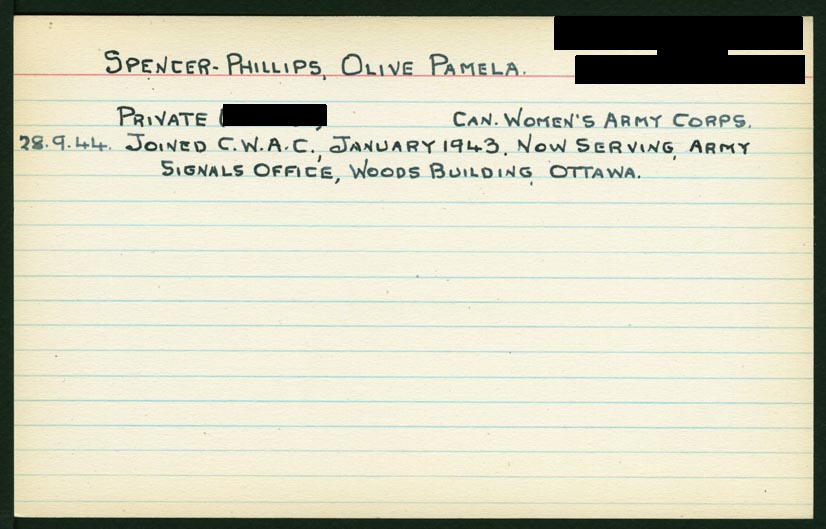 SPENCER-PHILLIPS, OLIVE PAMELA.
PRIVATE ( , CAN. WOMEN'S ARMY CORPS.
28.9.44. JOINED C.W.A.C., JANUARY 1943. NOW SERVING, ARMY
SIGNALS OFFICE, WOODS BUILDING, OTTAWA.